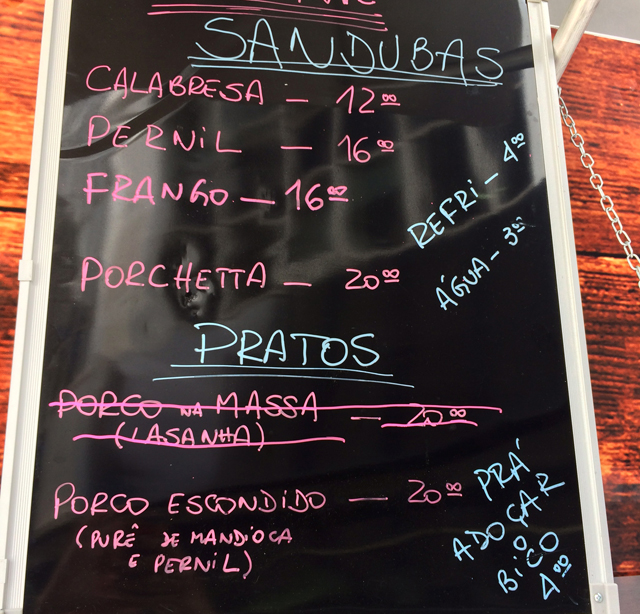 SANDUBAS
CALABRESA — 12⁰⁰
PERNIL — 16⁰⁰
FRANGO — 16⁰⁰
PORCHETTA — 20⁰⁰
REFRI — 4⁰⁰
ÁGUA — 3⁰⁰
PRATOS
PORCO NA MASSA — 20⁰⁰
(LASANHA)
PORCO ESCONDIDO — 20⁰⁰
(PURÊ DE MANDIOCA
E PERNIL)
PRÁ
ADOÇAR
O
BICO
4⁰⁰